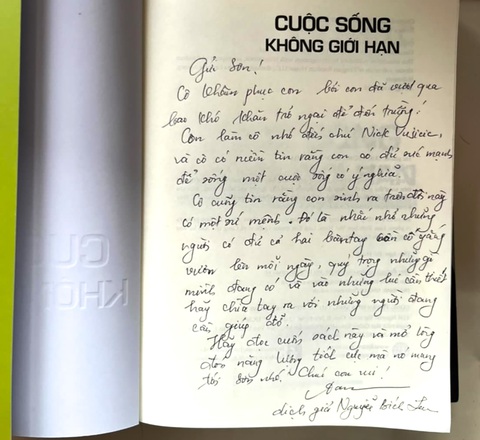 CUỘC SỐNG
KHÔNG GIỚI HẠN
Gửi Sơn!
Cô khâm phục con bởi con đã vượt qua
bao khó khăn trở ngại để đến trường!
Con làm cô nhớ đến chú Nick Vujicic,
và cô có niềm tin rằng con có đủ sức mạnh
để sống một cuộc sống có ý nghĩa.
Cô cũng tin rằng con sinh ra trên đời này
có một sứ mệnh. Đó là nhắc nhở những
người có đủ cả hai bàn tay cần cố gắng
vươn lên mỗi ngày, quý trọng những gì
mình đang có và vào những lúc cần thiết
hãy chìa tay ra với những người đang
cần giúp đỡ.
Hãy đọc cuốn sách này và mở lòng
đón năng lượng tích cực mà nó mang
tới Sơn nhé! Chúc con vui!
dịch giả Nguyễn Bích
CU
KHÔN